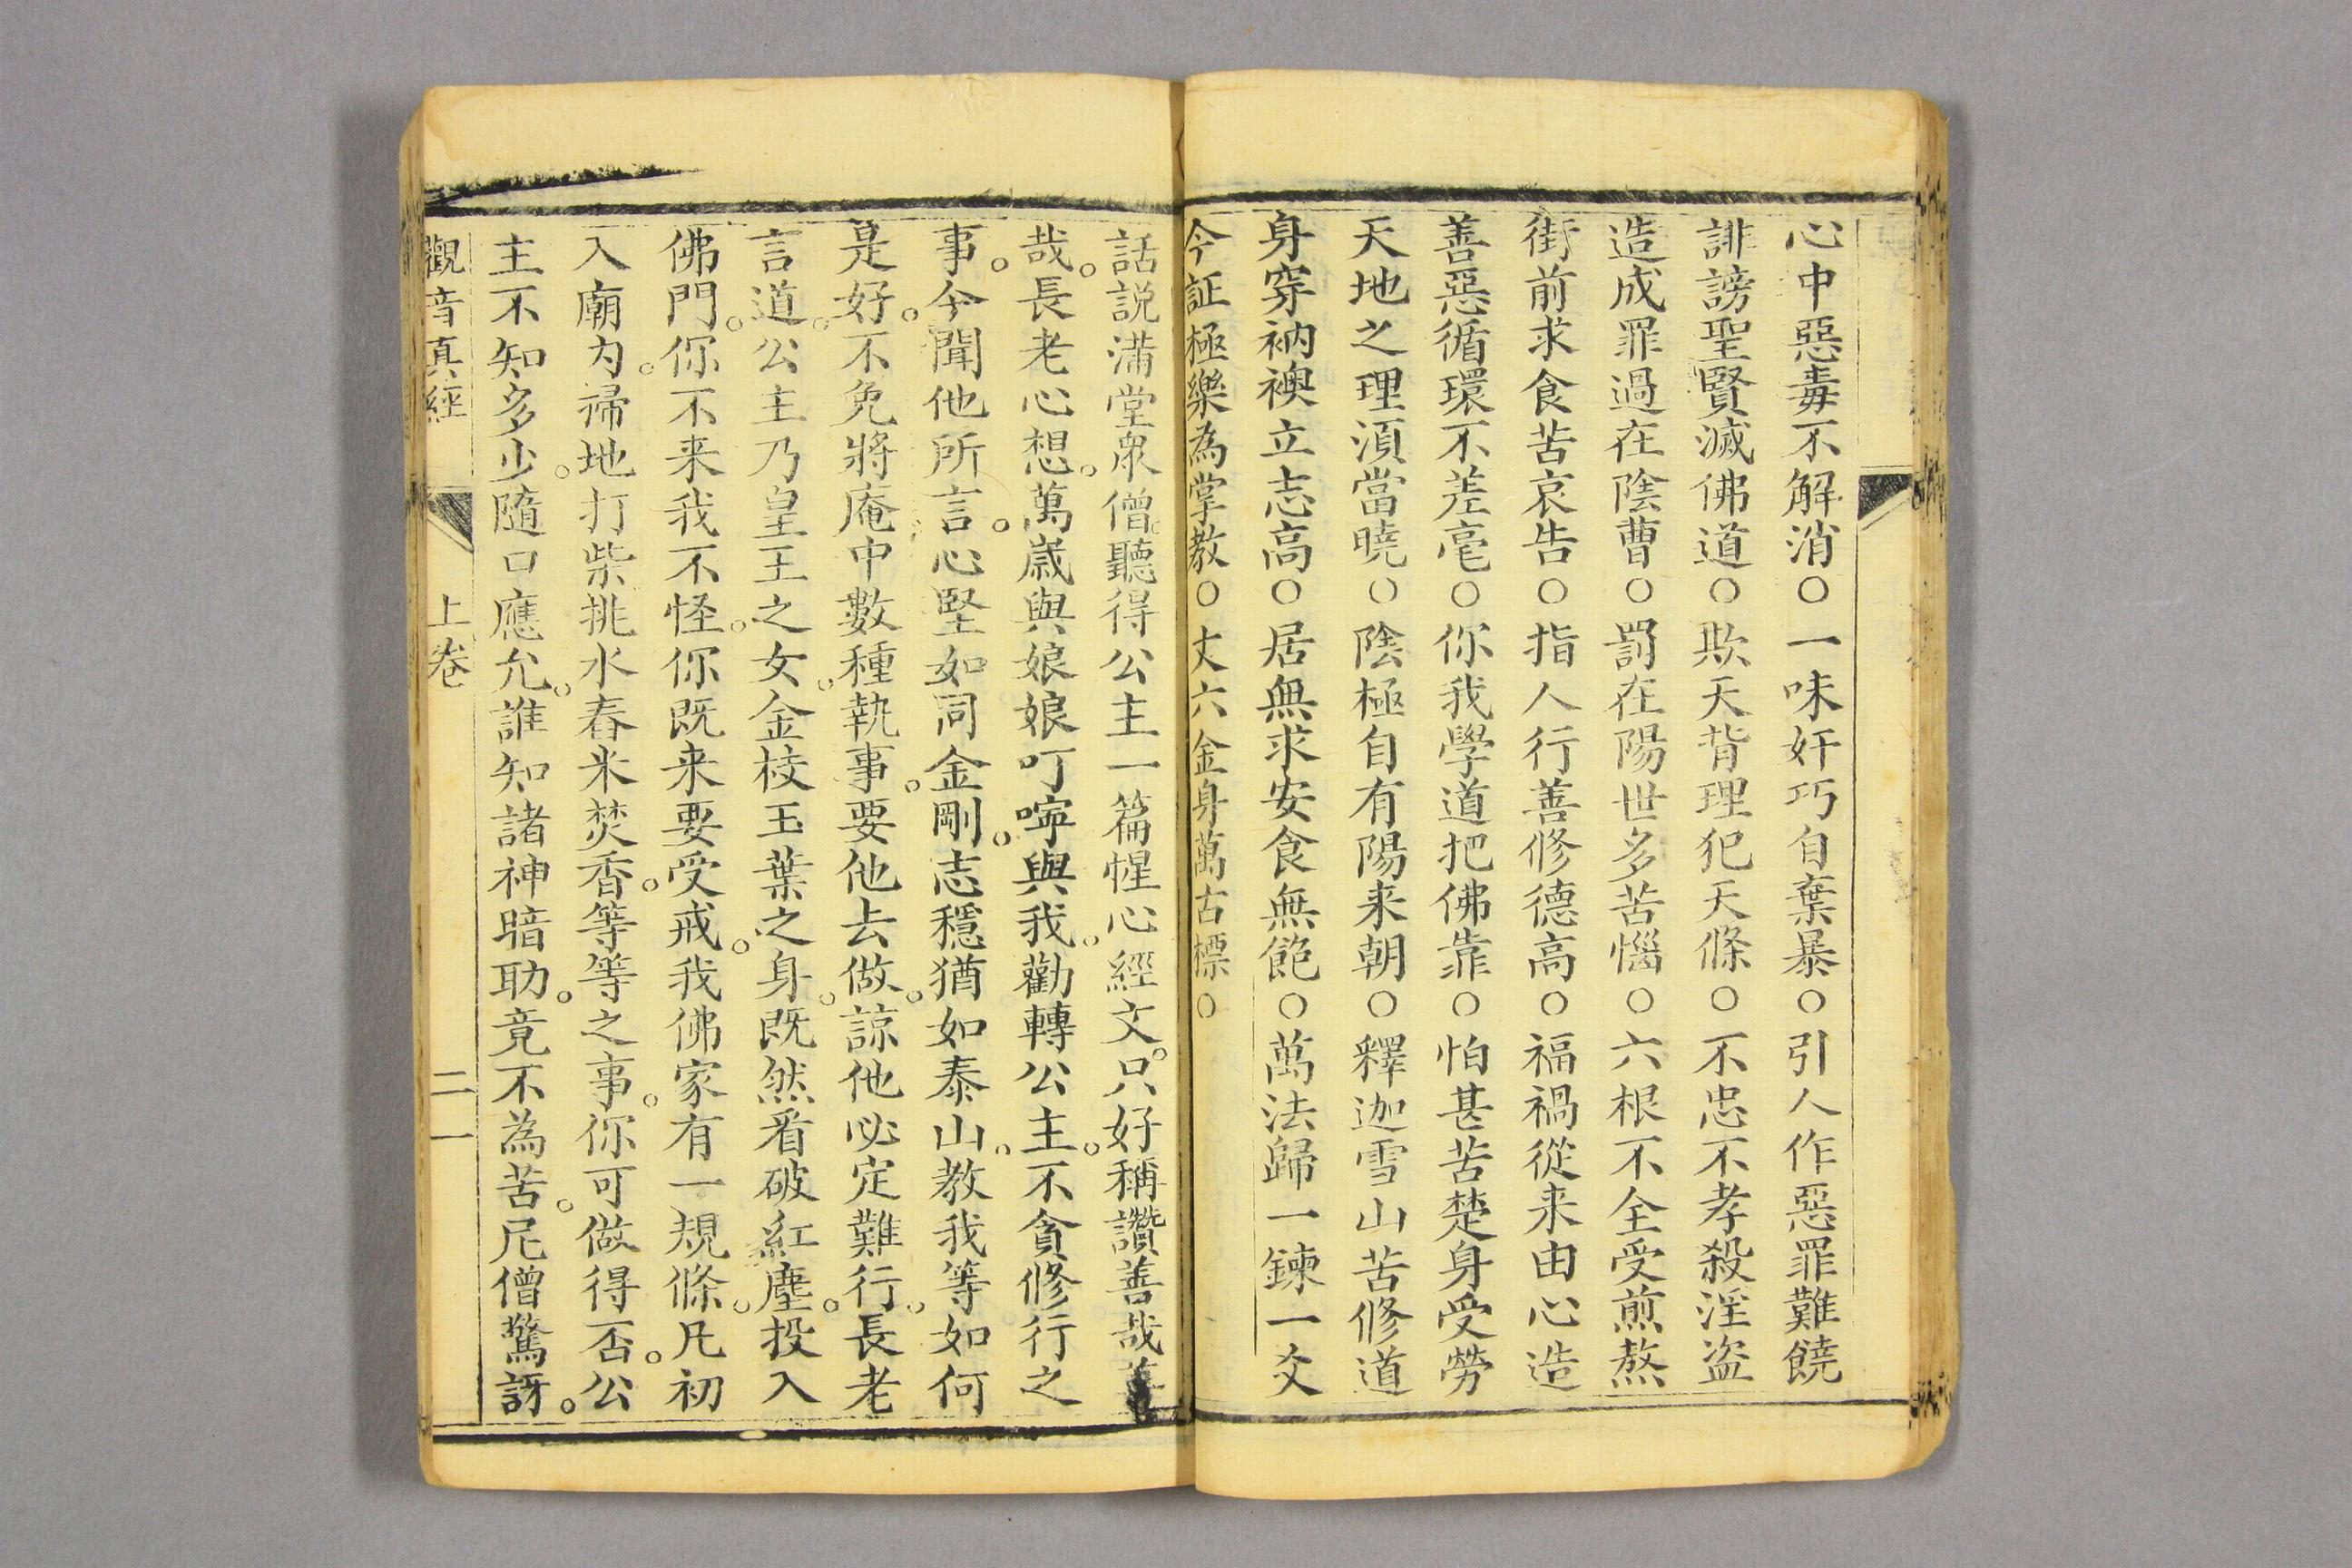 心中惡毒不解消○一味奸巧自棄暴○引人作惡罪難饒
誹謗聖賢滅佛道○欺天背理犯天條○不忠不孝殺淫盜
造成罪過在陰曹○罰在陽世多苦惱○六根不全受煎熬
街前求食苦哀告○指人行善修德高○福禍從来由心造
善惡循環不差毫○你我學道把佛靠○怕甚苦楚身受勞
天地之理湏當曉○陰極自有陽来朝○釋迦雪山苦修道
身穿衲襖立志高○居無求安食無飽○萬法歸一鍊一爻
今証極樂為掌教○丈六金身萬古標○
話説滿堂衆僧聽得公主一篇惺心經文。只好稱讚善哉善
哉。長老心想。萬嵗與娘娘叮嚀與我。勸轉公主。不貪修行之
事。今聞他所言。心堅如同金剛。志穩猶如泰山。教我等如何
是好。不免將庵中數種執事。要他去做。諒他必定難行。長老
言道。公主乃皇王之女。金枝玉葉之身。既然看破紅塵。投入
佛門。你不来我不怪。你既来要受戒。我佛家有一規條。凡初
入廟内。掃地打柴挑水舂米焚香。等等之事。你可做得否。公
主不知多少。隨口應允。誰知諸神暗助。竟不為苦。尼僧驚訝。
觀音真經 上卷 二一